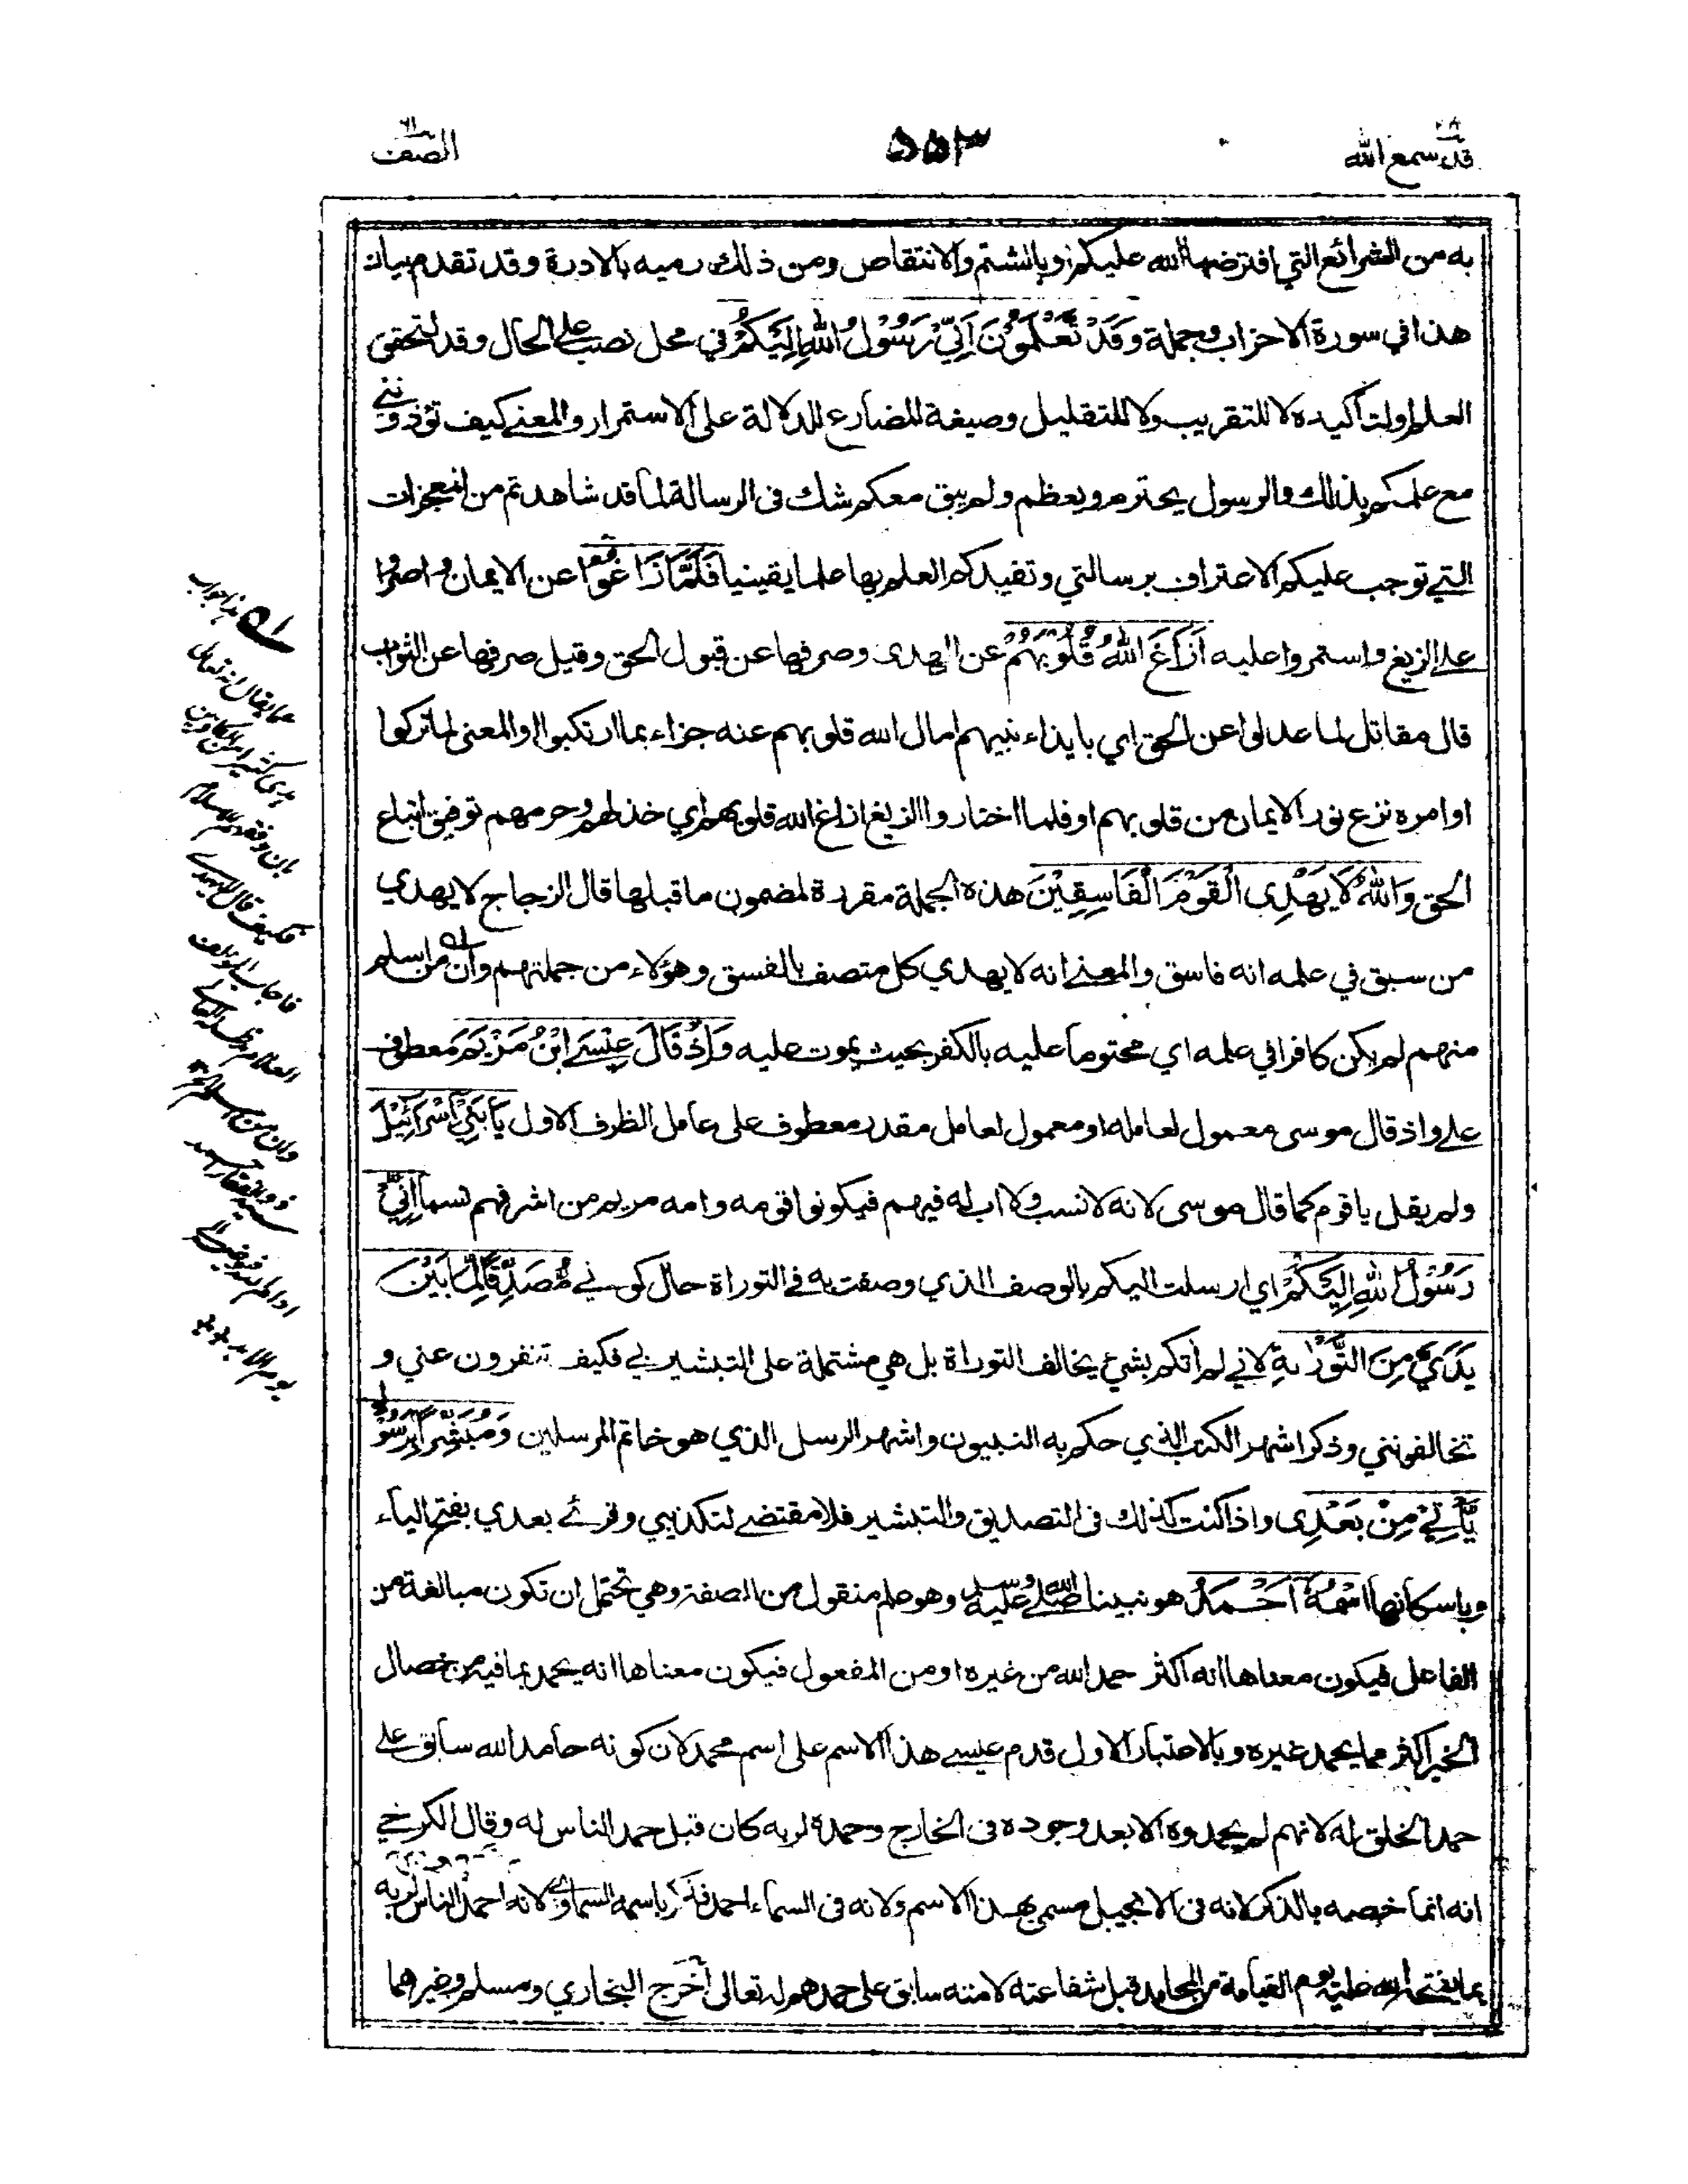 قد سمع الله ٢٨
٥٥٣
الصف ٦١
به من الشرائع التي افترضها الله عليكم او بالشتم والانتقاص ومن ذلك رميه بالادرة وقد تقدم بيان
هذا في سورة الاحزاب وجملة وَقَدْ تَّعْلَمُوْنَ اَنِّيْ رَسُوْلُ اللهِ اِلَيْكُمْ في محل نصب على الحال وقد لتحقق
العلم او لتأكيده لا للتقريب ولا للتقليل وصيغة المضارع للدلالة على الاستمرار والمعنى كيف تؤذونني
مع علمكم بذلك والرسول يحترم ويعظم ولم يبق معكم شك فى الرسالة لما قد شاهدتم من المعجزات
التي توجب عليكم الاعتراف برسالتي وتفيدكم العلم بها علما يقينيا فَلَمَّا زَاغُوْا عن الايمان واصروا
على الزيغ واستمروا عليه اَزَاغَ اللهُ قُلُوْبَهُمْ عن الهدى وصرفها عن قبول الحق وقيل صرفها عن الثواب
قال مقاتل لما عدلوا عن الحق اي بايذاء نبيهم امال الله قلوبهم عنه جزاء بما ارتكبوا او المعنى لما تركوا
اوامره نزع نور الايمان من قلوبهم او فلما اختاروا الزيغ ازاغ الله قلوبهم اي خذلهم وحرمهم توفيق اتباع
الحق وَاللهُ لَا يَهْدِى الْقَوْمَ الْفَاسِقِيْنَ هذه الجملة مقررة لمضمون ما قبلها قال الزجاج لا يهدي
من سبق في علمه انه فاسق والمعنى انه لا يهدي كل متصف بالفسق وهؤلاء من جملتهم وان من اسلم
منهم لم يكن كافرا في علمه اي محتوما عليه بالكفر بحيث يموت عليه وَاِذْ قَالَ عِيْسَى ابْنُ مَرْيَمَ معطوف
على واذ قال موسى معمول لعامله او معمول لعامل مقدر معطوف على عامل الظرف الاول يَا بَنِيْ اِسْرَائِيْلَ
ولم يقل يا قوم كما قال موسى لانه لا نسب ولا اب له فيهم فيكونوا قومه وامه مريم من اشرفهم نسبا اِنِّيْ
رَسُوْلُ اللهِ اِلَيْكُمْ اي ارسلت اليكم بالوصف الذي وصفت به في التوراة حال كوني مُصَدِّقًا لِّمَا بَيْنَ
يَدَيَّ مِنَ التَّوْرٰىةِ لاني لم أتكم بشئ يخالف التوراة بل هي مشتملة على التبشير بي فكيف تنفرون عني و
تخالفونني وذكر اشهر الكتب الذي حكم به النبيون واشهر الرسل الذي هو خاتم المرسلين وَمُبَشِّرًا بِرَسُوْلٍ
يَّأْتِيْ مِنْ بَعْدِى واذا كنت كذلك فى التصديق والتبشير فلا مقتضى لتكذيبي وقرئ بعدي بفتح الياء
وباسكانها اسْمُهٗ اَحْمَدُ هو نبينا صلى الله عليه وسلم وهو علم منقول من الصفة وهي تحتمل ان تكون مبالغة من
الفاعل فيكون معناها انه اكثر حمد الله من غيره او من المفعول فيكون معناها انه يحمد بما فيه من خصال
الخير اكثر مما يحمد غيره وبالاعتبار الاول قدم عيسى هذا الاسم على اسم محمد لان كونه حامدا لله سابق على
حمد الخلق له لانهم لم يحمدوه الا بعد وجوده فى الخارج وحمده لربه كان قبل حمد الناس له وقال الكرخي
انه انما خصه بالذكر لانه فى الانجيل مسمى بهذا الاسم ولانه فى السماء احمد فذكر باسمه السماوي لانه احمد الناس لربه
بما يفتح الله عليه يوم القيامة من المحامد قبل شفاعته لامته سابق على حمدهم له تعالى اخرج البخاري ومسلم وغيرهما
هذا جواب
عما يقال ان الله تعالى
هدى كثيرا من الكافرين
بان وفقهم للاسلام
فكيف قال لا يهدي
فاجاب المؤلف